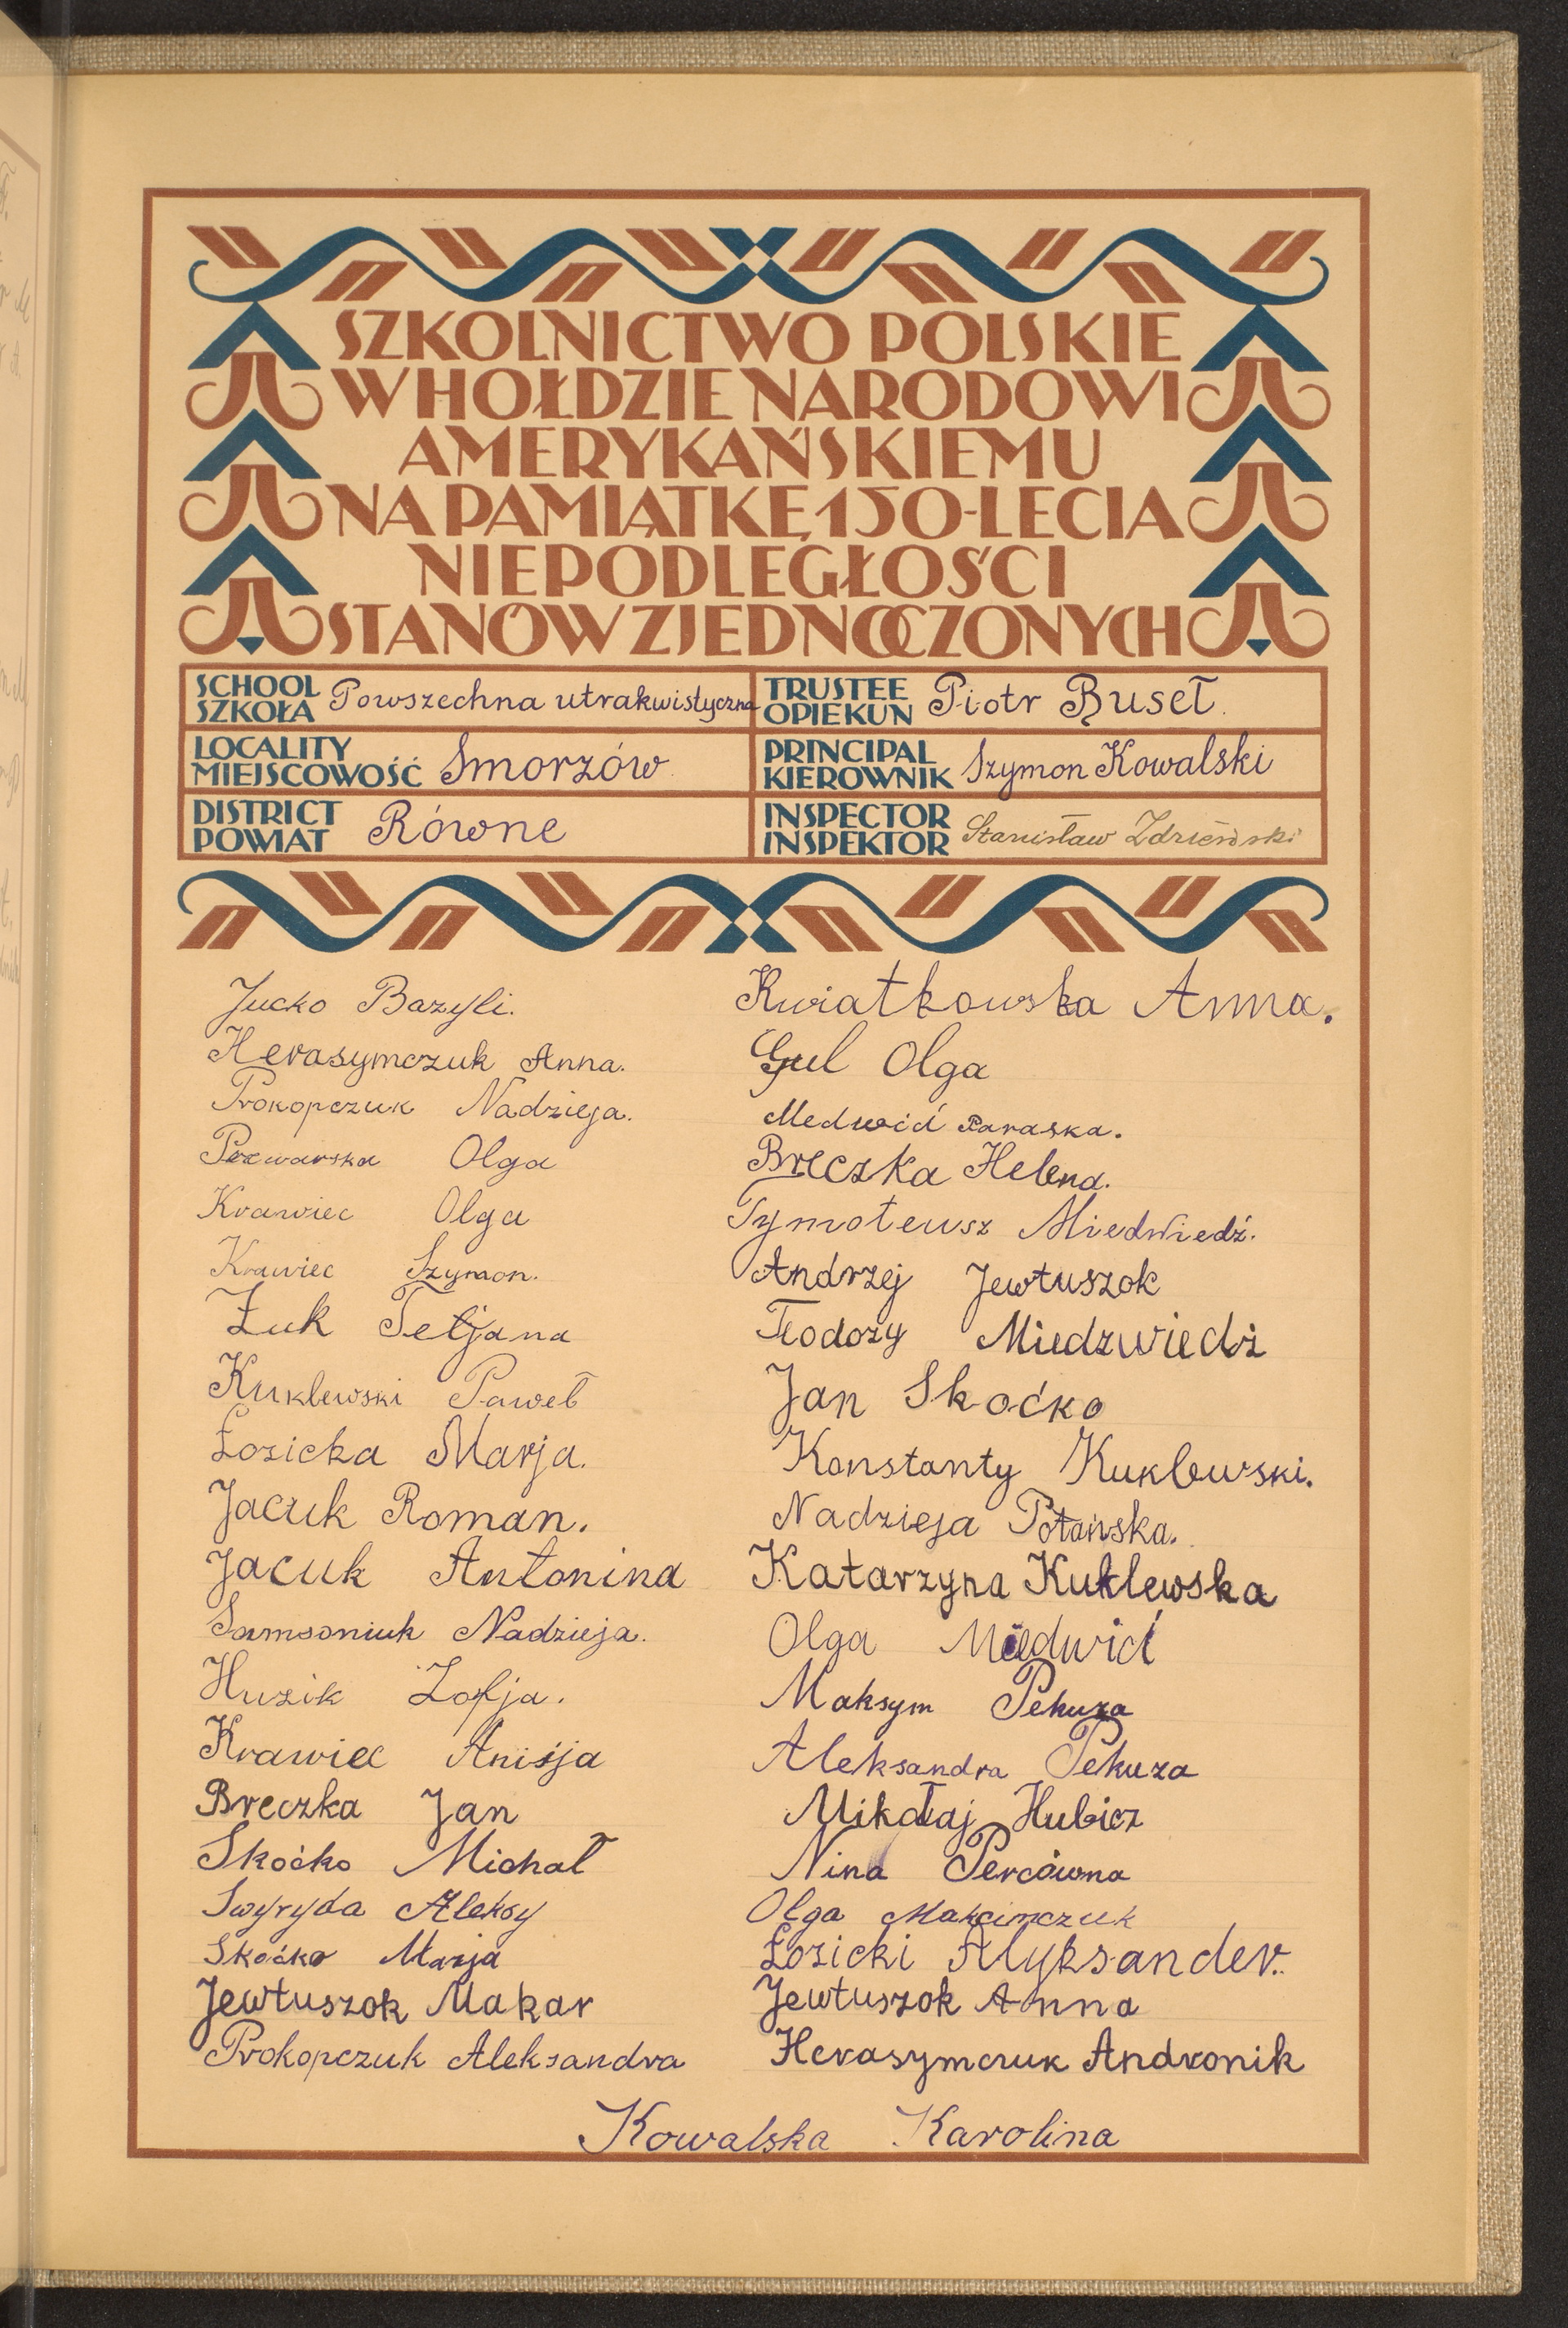 SZKOLNICTWO POLSKIE
W HOŁDZIE NARODOWI
AMERYKAŃSKIEMU
NA PAMIĄTKĘ 150-LECIA
NIEPODLEGŁOŚCI
STANÓW ZJEDNOCZONYCH
SCHOOL
SZKOŁA Powszechna utrakwistyczna
TRUSTEE
OPIEKUN Piotr Buseł.
LOCALITY
MIEJSCOWOŚĆ Smorzów
PRINCIPAL
KIEROWNIK Szymon Kowalski
DISTRICT
POWIAT Równe
INSPECTOR
INSPEKTOR Stanisław
Jucko Bazyli.
Herasymczuk Anna.
Prokopczuk Nadzieja.
Olga
Krawiec Olga
Krawiec Szymon.
Żuk Tetjana
Kuklewski Paweł
Łozicka Marja.
Jacuk Roman.
Jacuk Antonina
Samsoniuk Nadzieja.
Huzik Zofja.
Krawiec Anisja
Breczka Jan
Skoćko Michał
Swyryda Aleksy
Skoćko Marja
Jewtuszok Makar
Prokopczuk Aleksandra
Kwiatkowska Anna.
Gul Olga
Medwid́ Paraska.
Breczka Helena.
Tymoteusz Miedwiedź.
Andrzej Jewtuszok
Teodozy Miedzwiedź
Jan Skoćko
Konstanty Kuklewski.
Nadzieja Potańska.
Katarzyna Kuklewska
Olga Miedwid́
Maksym Pekuza
Aleksandra Pekuza
Mikołaj Hubicz
Nina Percówna
Olga Makcimczuk
Łozicki Alyksander.
Jewtuszok Anna
Herasymczuk Andronik
Kowalska Karolina